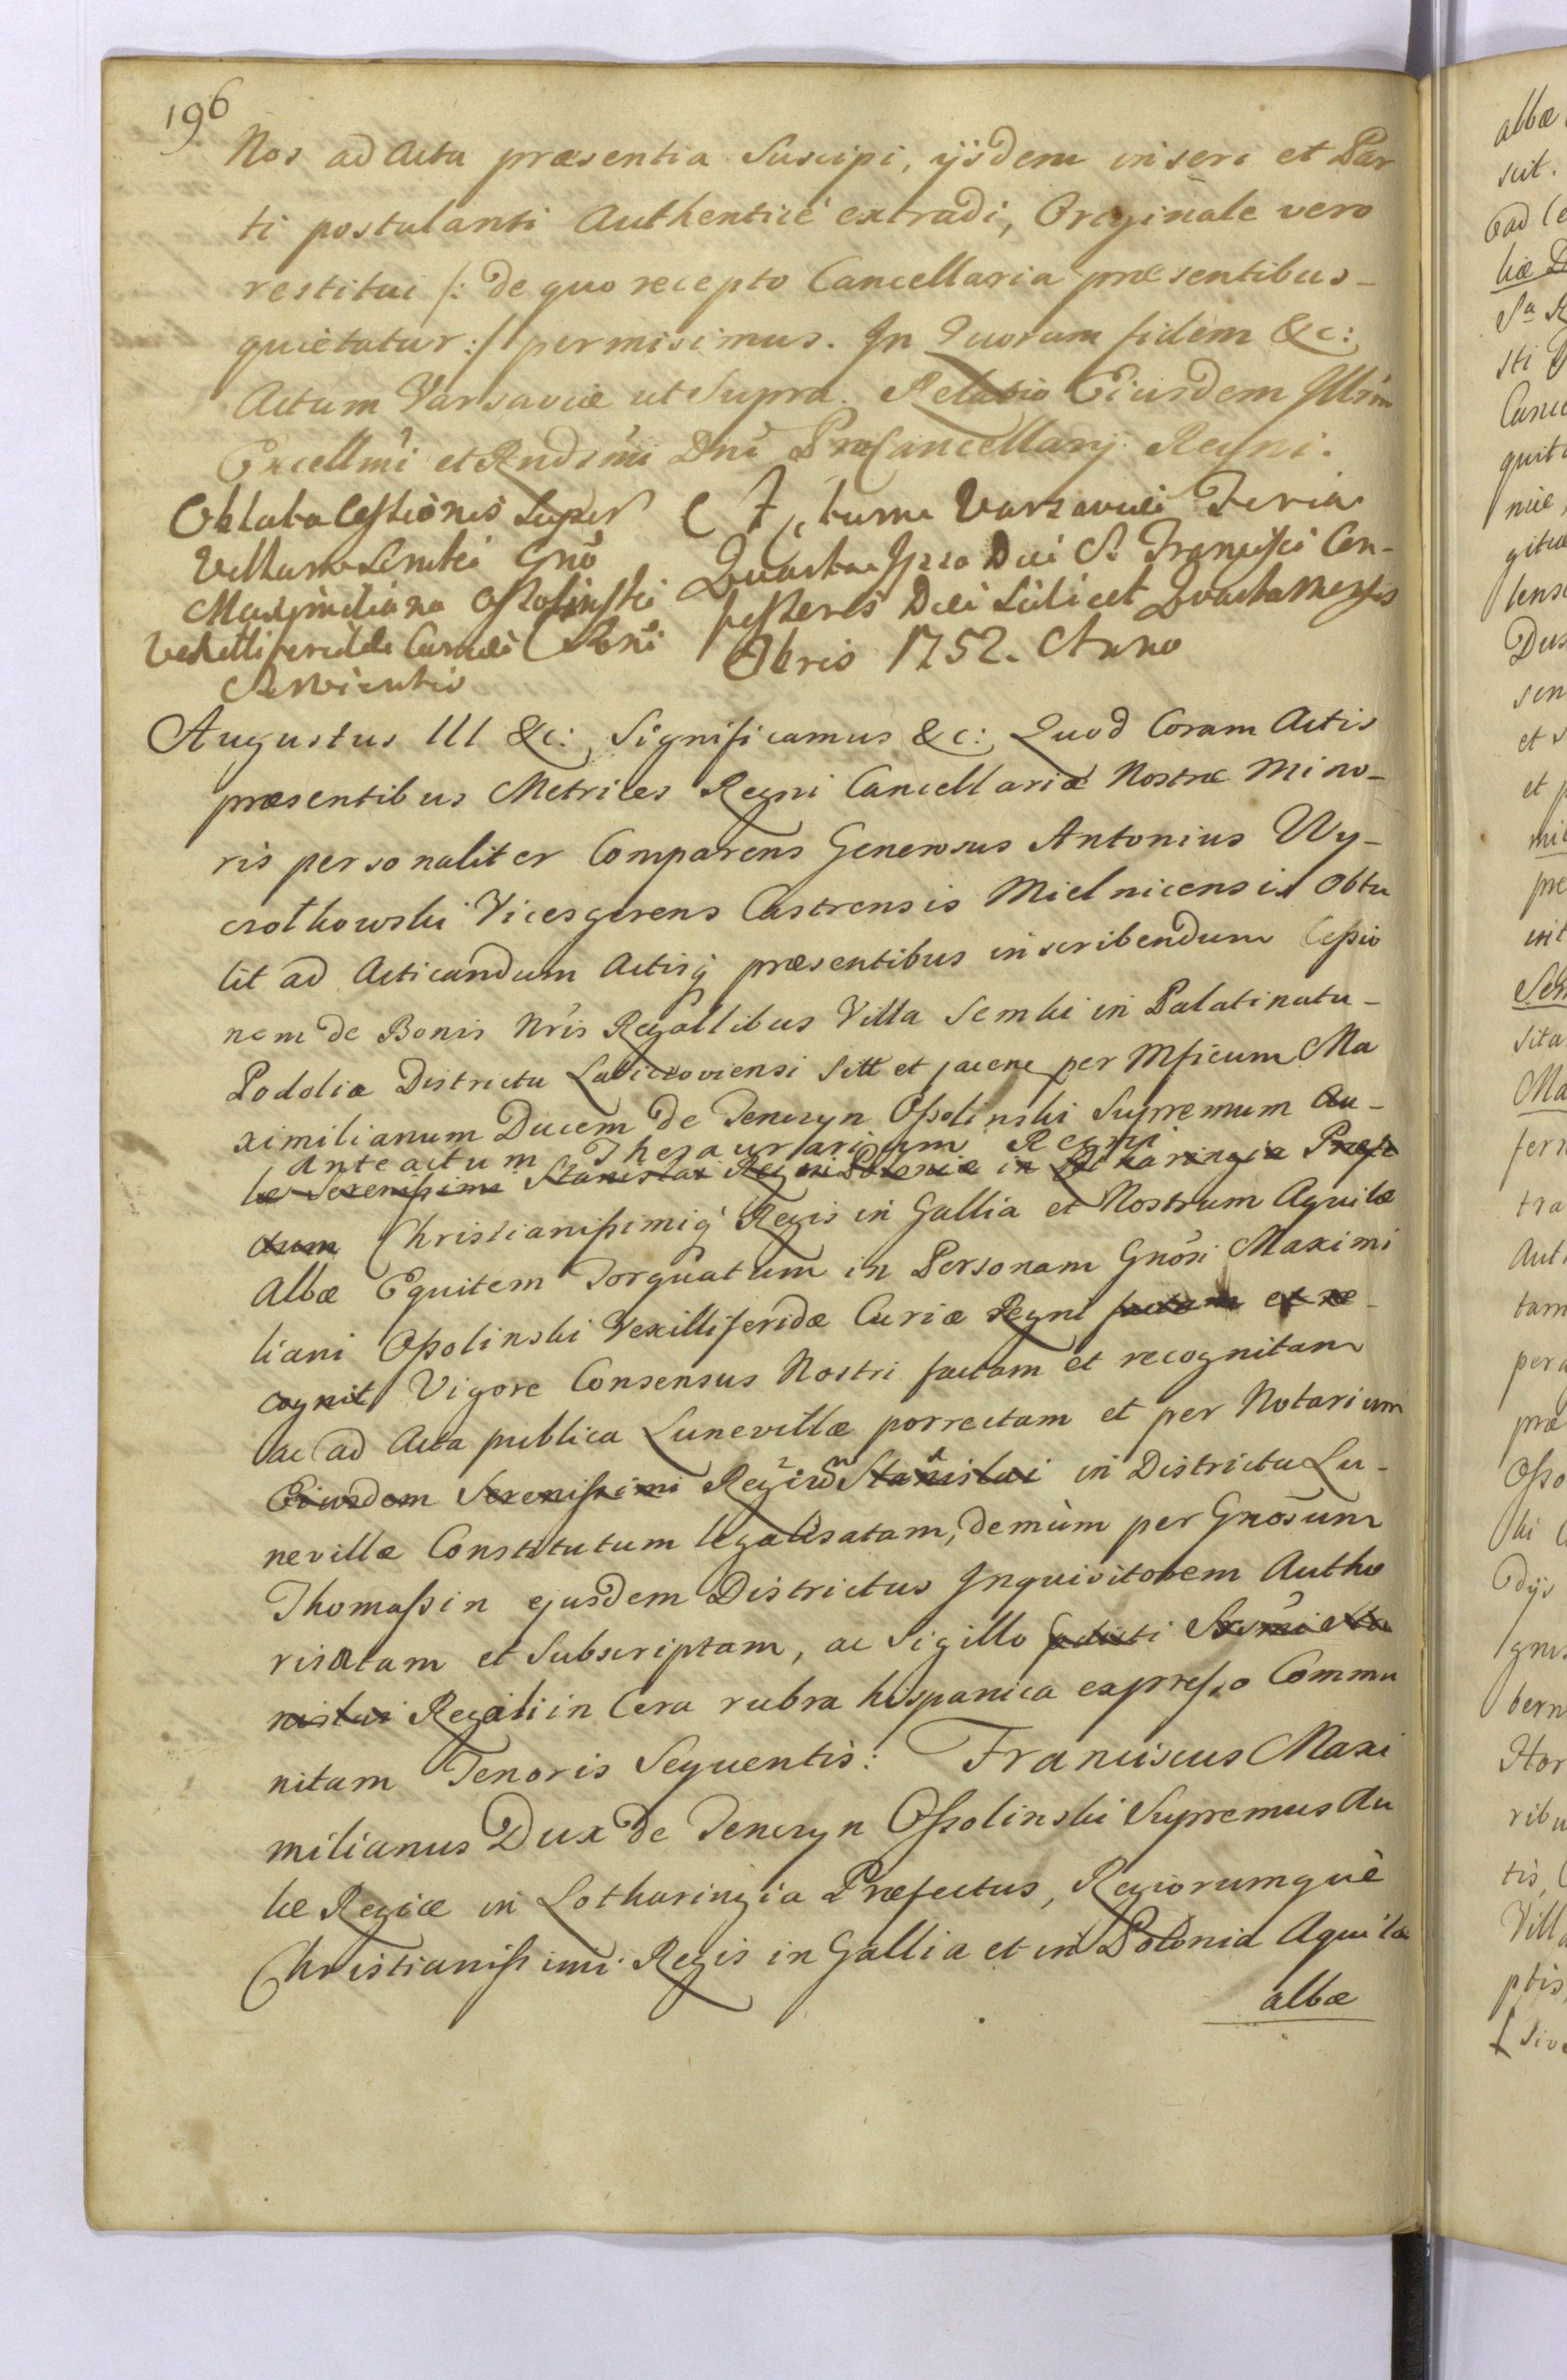 196
Nos ad Acta præsentia Suscipi, ijsdem inseri et Par
ti postulanti Authenticè extradi, Originale vero
restitui /: de quo recepto Cancellaria præsentibus-
quietatur :/ permisimus. In Quorum fidem &c:
Actum Varsaviæ ut Supra. Relatio Eiusdem Illrīm
Excellmi et Rndsmi Dni ProCancellarij Regni.
Oblata Cessionis Super
Villam Semki Gnō
Maximiliano Ossolinski
Vexilliferidæ Curiæ Rnī
Servientis
Actum Varsaviæ Feria
Quarta Ipso Die S. Francisci Con-
fessoris Die Scilicet Quarta Mensis
8bris 1752. Anno
Augustus III &c: Significamus &c: Quod Coram Actis
præsentibus Metrices Regni Cancellariæ Nostræ Mino-
ris personaliter Comparens Generosus Antonius Wy-
czołkowski Vicesgerens Castrensis Mielnicensis Obtu
lit ad Acticandum Actisq̀ præsentibus inscribendum Cessio
nem de Bonis Nr̃is Regallibus Villa Semki in Palatinatu-
Podoliæ Districtu Laticzoviensi Sitt et jacen per Mficum Ma
ximilianum Ducem de Tenczyn Ossolinski Supremum Au-
Anteactum Thesaurarium Regni
læ Serenissimi Stanislai Regni Poloniæ in Lotharingia Præfe
ctum Christianissimiq̀ Regis in Gallia et Nostrum Aquilæ
Albæ Equitem Torquatum in Personam Gnōsi Maximi
liani Ossolinski Vexilliferidæ Curiæ Regni factam et re-
cognit Vigore Consensus Nostri factam et recognitam
ac ad Acta publica Lunevillæ porrectam et per Notarium
Eiusdem Serenissimi Regium Stanislai in Districtu Lu-
nevillæ Constitutum legalisatam, demùm per Gnōsum
Thomassin ejusdem Districtus Inquisitorem Autho
risatam et Subscriptam, ac Sigillo Srmi Sta
nislai Regali in Cera rubra hispanica expresso Commu
nitam Tenoris Sequentis: Franciscus Maxi
milianus Dux de Tenczyn Ossolinski Supremus Au
læ Regiæ in Lotharingia Præfectus, Regiorumquè
Christianissimi Regis in Gallia et in Polonia Aquilæ
albæ